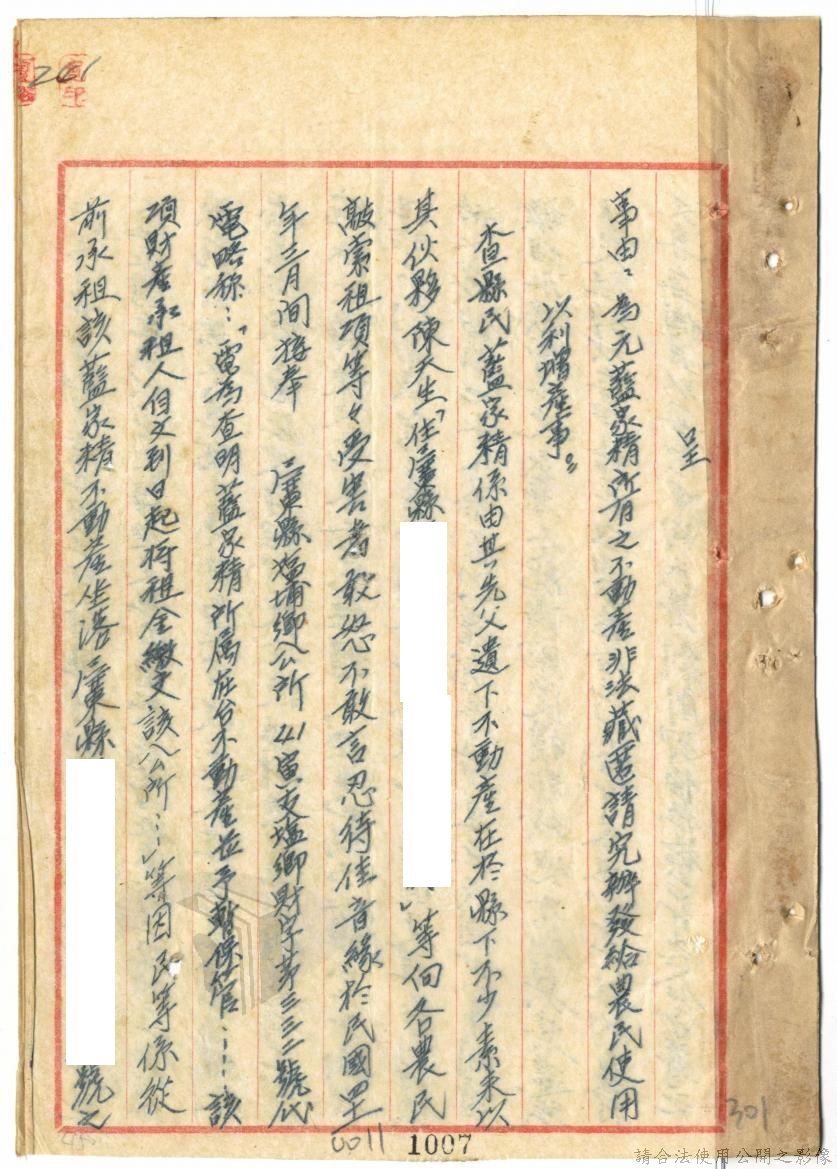 呈
事由：為元藍家精所有之不動產非法藏匿請究辦發給農民使用
以利增產事。
查縣民藍家精係由其先父遺下不動產在於縣下不少素來以
其伙夥陳天生「住屏縣
」等向各農民
敲索租項等々受害者敢怒不敢言忍待佳音緣於民國四十
年三月間接奉　屏東縣塩埔鄉公所41寅支塩鄉財字第三三二號代
電略稱：「電為查明藍家精所屬在台不動產並予暫保管……該
項財產承租人自文到日起將租金繳交該公所…」等因民等係從
前承租該藍家精不動產坐落屏東縣
號之
301
0011
1007
請合法使用公開之影像